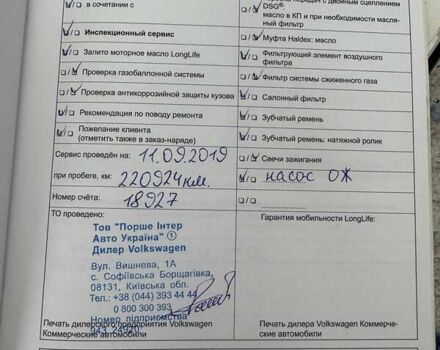 в сочетании с
Инспекционный сервис
Залито моторное масло LongLife
Проверка газобаллонной системы
Проверка антикоррозийной защиты кузова
Рекомендация по поводу ремонта
Пожелание клиента
(отметить также в заказ-наряде)
Сервис проведён на: 11.09.2019
при пробеге, км: 220924км.
Номер счёта: 18927
ТО проведено:
Тов "Порше Інтер
Авто Україна" ①
Дилер Volkswagen
Вул. Вишнева, 1А
с. Софіївська Борщагівка,
08131, Київська обл.
Тел.: +38 (044) 393 44 44
0 800 300 393
Номер підприємства
943 24920
Печать дилерского предприятия Volkswagen
Коммерческие автомобили
с двойным сцеплением
DSG®:
масло в КП и при необходимости масля-
ный фильтр
Муфта Haldex: масло
Фильтрующий элемент воздушного
фильтра
Фильтр системы сжиженного газа
Салонный фильтр
Зубчатый ремень
Зубчатый ремень: натяжной ролик
Свечи зажигания
насос ОЖ
Гарантия мобильности LongLife:
Печать дилера Volkswagen Коммерче-
ские автомобили